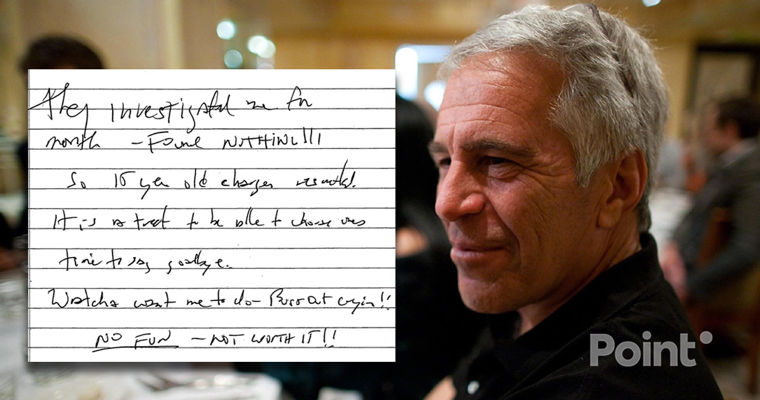 They investigated me for
month - Found NOTHING!!!
So 15 year old charges resulted.
It is a treat to be able to choose ones
time to say goodbye.
Watcha want me to do - Bust out cryin!!
NO FUN - NOT WORTH IT!!
Point